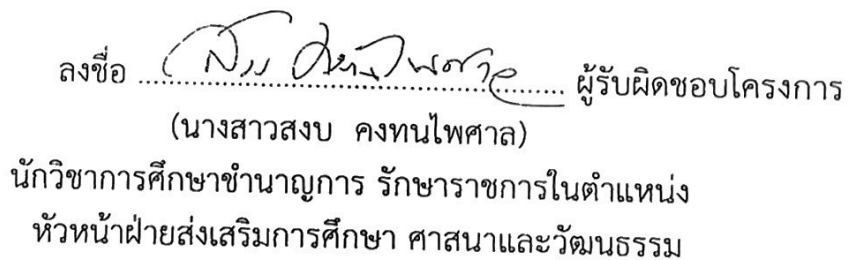 ลงชื่อ ........................................................ ผู้รับผิดชอบโครงการ
(นางสาวสงบ คงทนไพศาล)
นักวิชาการศึกษาชำนาญการ รักษาราชการในตำแหน่ง
หัวหน้าฝ่ายส่งเสริมการศึกษา ศาสนาและวัฒนธรรม